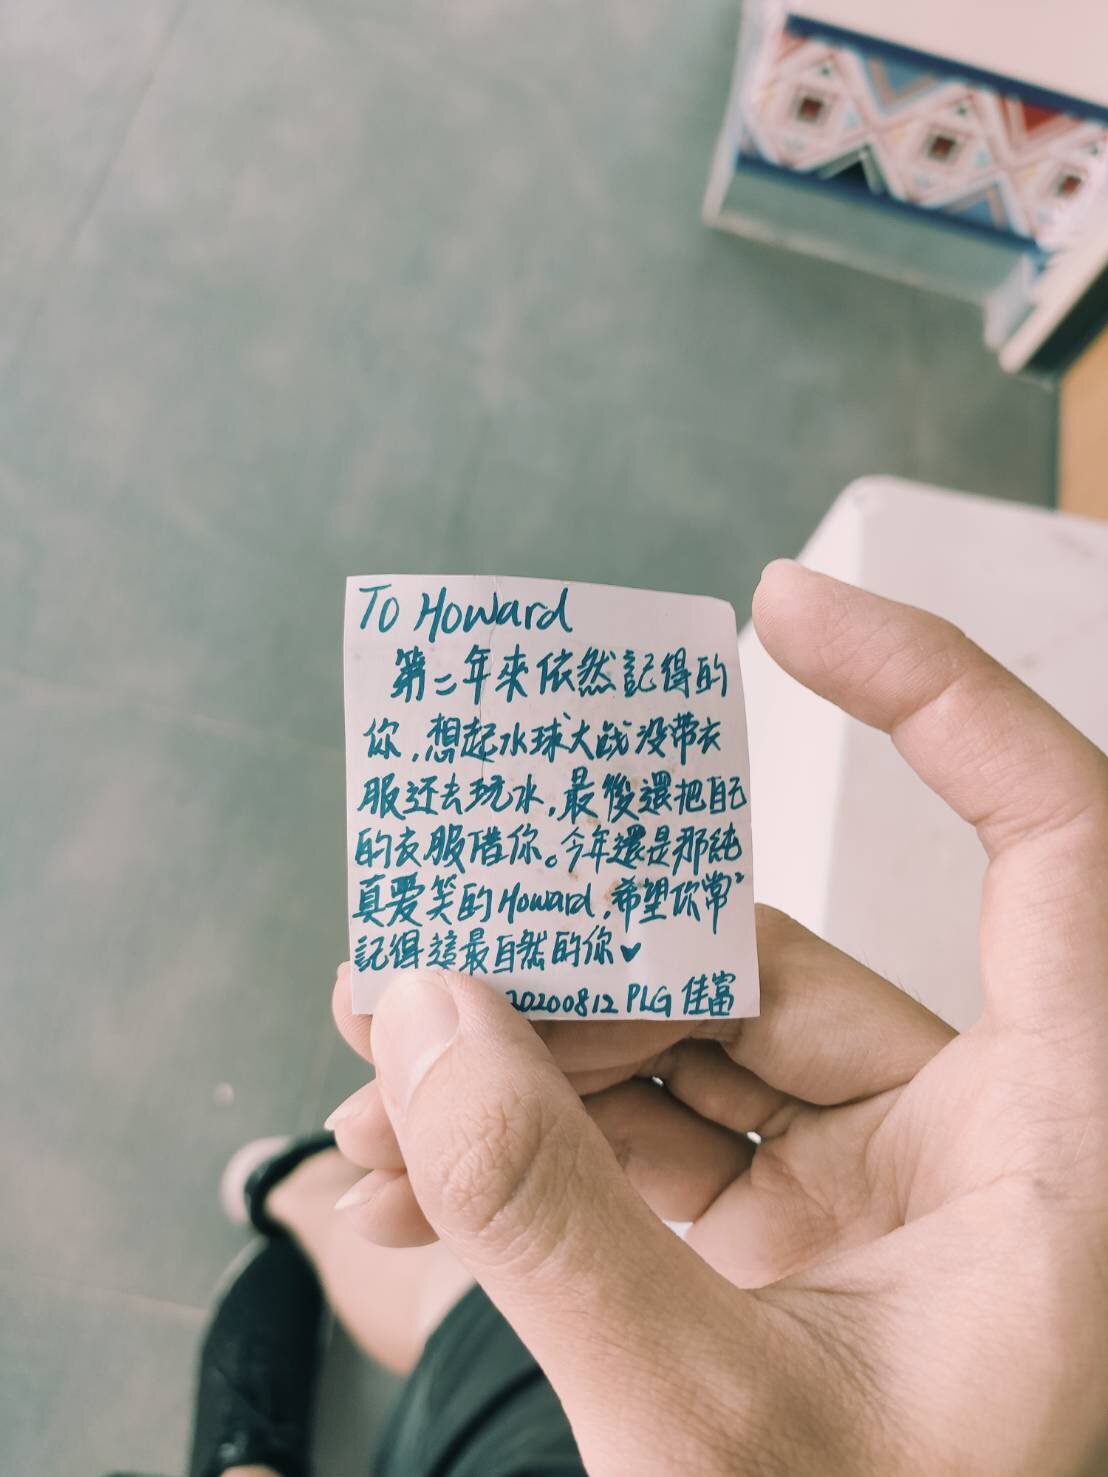 To Howard
第二年來依然記得的
你，想起水球大战没带衣
服还去玩水，最後還把自己
的衣服借你。今年還是那純
真爱笑的Howard，希望你常²
記得這最自然的你♥
20200812 PLG 佳富